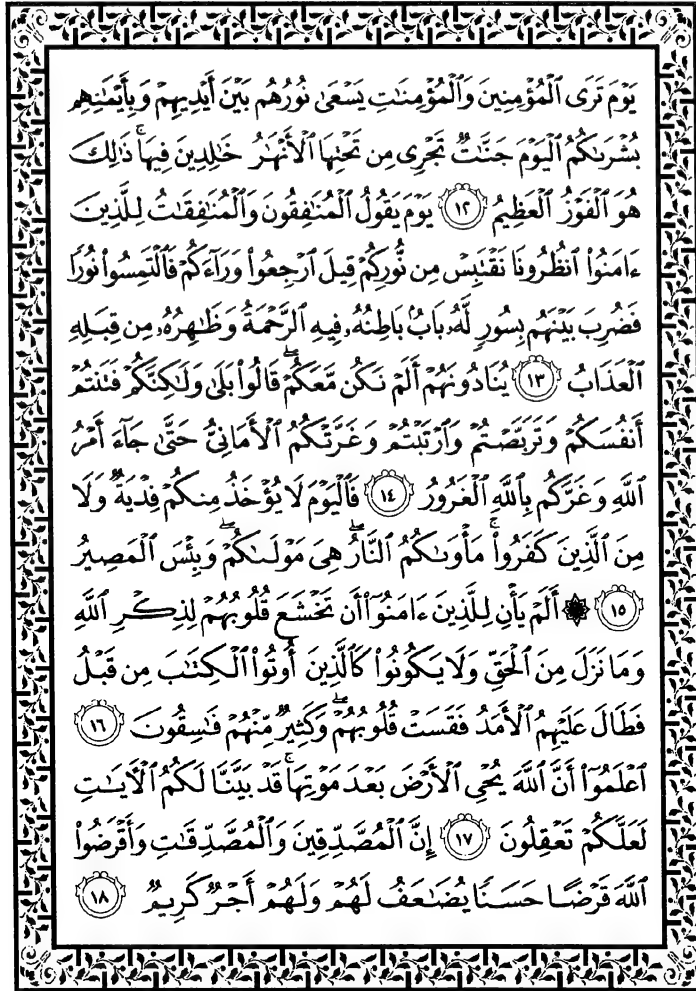 يَوْمَ تَرَى ٱلْمُؤْمِنِينَ وَٱلْمُؤْمِنَٰتِ يَسْعَىٰ نُورُهُم بَيْنَ أَيْدِيهِمْ وَبِأَيْمَٰنِهِم
بُشْرَىٰكُمُ ٱلْيَوْمَ جَنَّٰتٌ تَجْرِى مِن تَحْتِهَا ٱلْأَنْهَٰرُ خَٰلِدِينَ فِيهَاۚ ذَٰلِكَ
هُوَ ٱلْفَوْزُ ٱلْعَظِيمُ ١٢ يَوْمَ يَقُولُ ٱلْمُنَٰفِقُونَ وَٱلْمُنَٰفِقَٰتُ لِلَّذِينَ
ءَامَنُوا۟ ٱنظُرُونَا نَقْتَبِسْ مِن نُّورِكُمْ قِيلَ ٱرْجِعُوا۟ وَرَآءَكُمْ فَٱلْتَمِسُوا۟ نُورًا
فَضُرِبَ بَيْنَهُم بِسُورٍ لَّهُۥ بَابٌۢ بَاطِنُهُۥ فِيهِ ٱلرَّحْمَةُ وَظَٰهِرُهُۥ مِن قِبَلِهِ
ٱلْعَذَابُ ١٣ يُنَادُونَهُمْ أَلَمْ نَكُن مَّعَكُمْۖ قَالُوا۟ بَلَىٰ وَلَٰكِنَّكُمْ فَتَنتُمْ
أَنفُسَكُمْ وَتَرَبَّصْتُمْ وَٱرْتَبْتُمْ وَغَرَّتْكُمُ ٱلْأَمَانِىُّ حَتَّىٰ جَآءَ أَمْرُ
ٱللَّهِ وَغَرَّكُم بِٱللَّهِ ٱلْغَرُورُ ١٤ فَٱلْيَوْمَ لَا يُؤْخَذُ مِنكُمْ فِدْيَةٌ وَلَا
مِنَ ٱلَّذِينَ كَفَرُوا۟ۚ مَأْوَىٰكُمُ ٱلنَّارُۖ هِىَ مَوْلَىٰكُمْۖ وَبِئْسَ ٱلْمَصِيرُ
١٥ ۞ أَلَمْ يَأْنِ لِلَّذِينَ ءَامَنُوٓا۟ أَن تَخْشَعَ قُلُوبُهُمْ لِذِكْرِ ٱللَّهِ
وَمَا نَزَلَ مِنَ ٱلْحَقِّ وَلَا يَكُونُوا۟ كَٱلَّذِينَ أُوتُوا۟ ٱلْكِتَٰبَ مِن قَبْلُ
فَطَالَ عَلَيْهِمُ ٱلْأَمَدُ فَقَسَتْ قُلُوبُهُمْۖ وَكَثِيرٌ مِّنْهُمْ فَٰسِقُونَ ١٦
ٱعْلَمُوٓا۟ أَنَّ ٱللَّهَ يُحْىِ ٱلْأَرْضَ بَعْدَ مَوْتِهَاۚ قَدْ بَيَّنَّا لَكُمُ ٱلْءَايَٰتِ
لَعَلَّكُمْ تَعْقِلُونَ ١٧ إِنَّ ٱلْمُصَّدِّقِينَ وَٱلْمُصَّدِّقَٰتِ وَأَقْرَضُوا۟
ٱللَّهَ قَرْضًا حَسَنًا يُضَٰعَفُ لَهُمْ وَلَهُمْ أَجْرٌ كَرِيمٌ ١٨